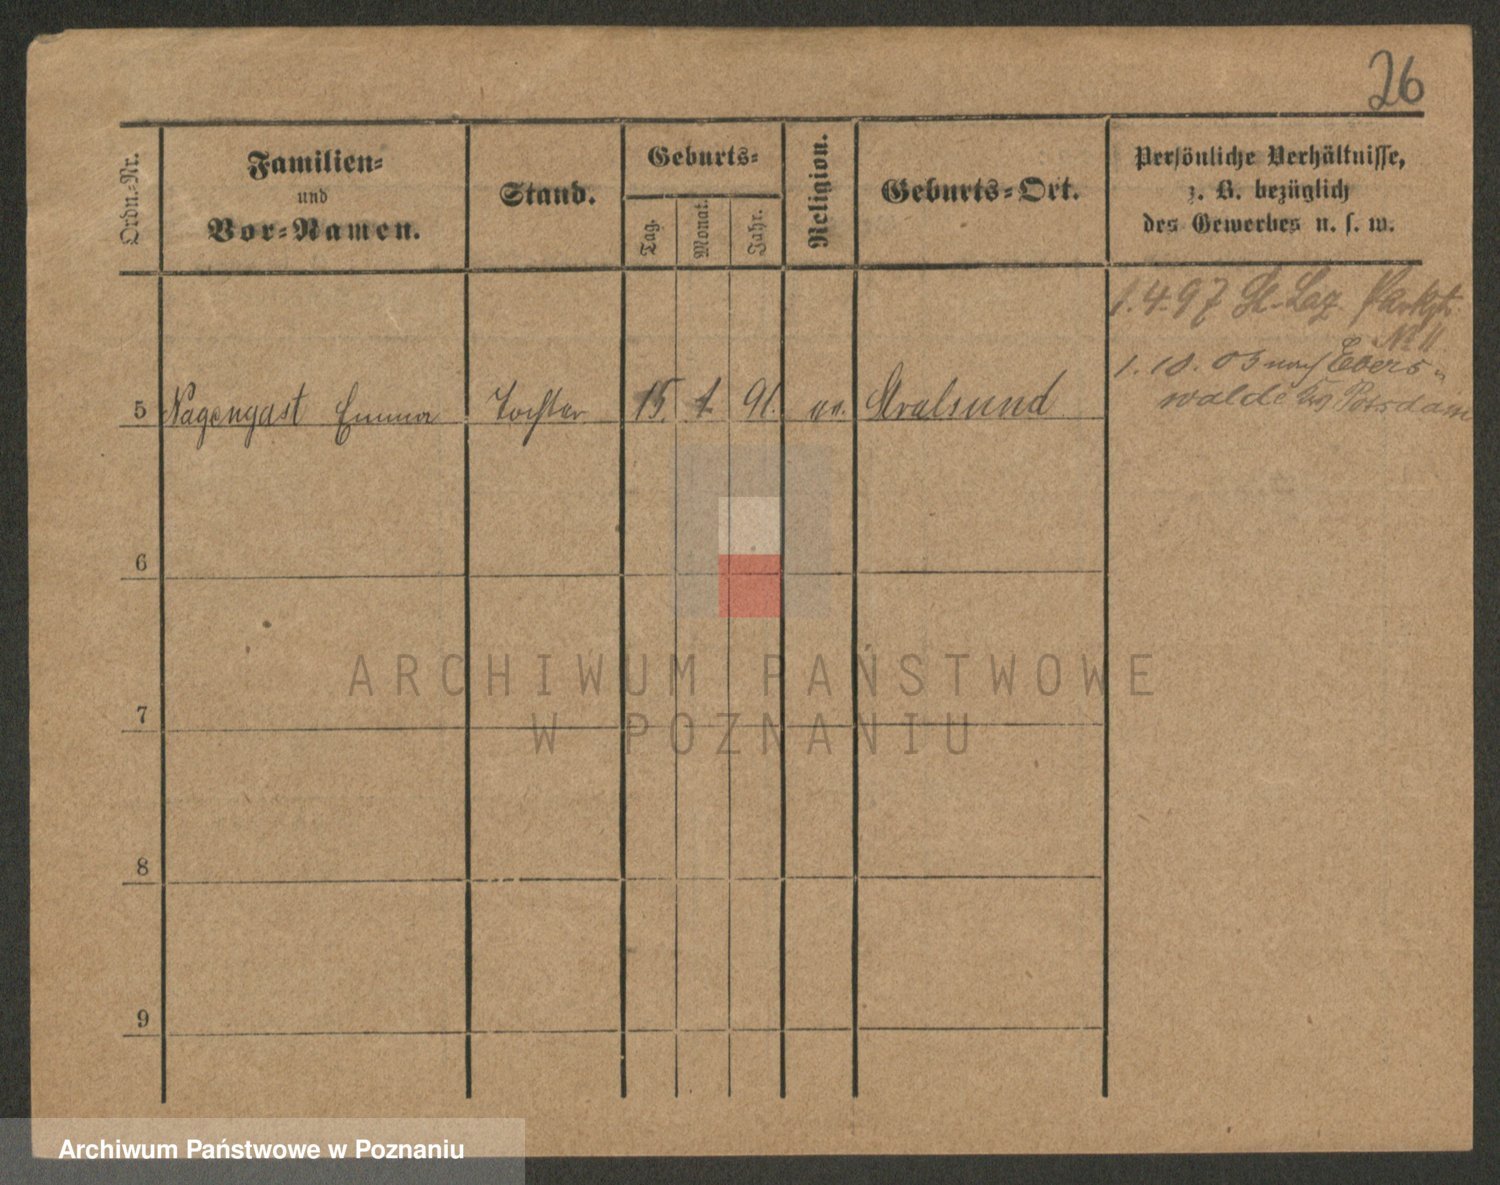 26
Ordn.-Nr.
Familien-
und
Vor-Namen.
Stand.
Geburts-
Tag.
Monat.
Jahr.
Religion.
Geburts-Ort.
Persönliche Verhältnisse,
z. B. bezüglich
des Gewerbes u. s. w.
1.4.97 St. Laz. Parkstr.
No 11
1. 10. 03 nach Ebers-
walde Potsdam
5 Nagengast Emma Tochter 15. 1. 91. ev. Stralsund
6
7
8
9
ARCHIWUM PAŃSTWOWE
W POZNANIU
Archiwum Państwowe w Poznaniu